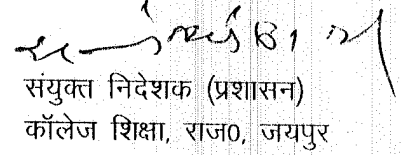 संयुक्त निदेशक (प्रशासन)
कॉलेज शिक्षा, राज0, जयपुर